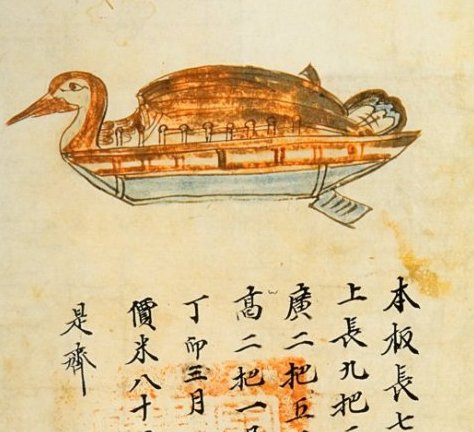 本板長七
上長九把
廣二把五
高二把一
丁卯三月
價米八十
是齋